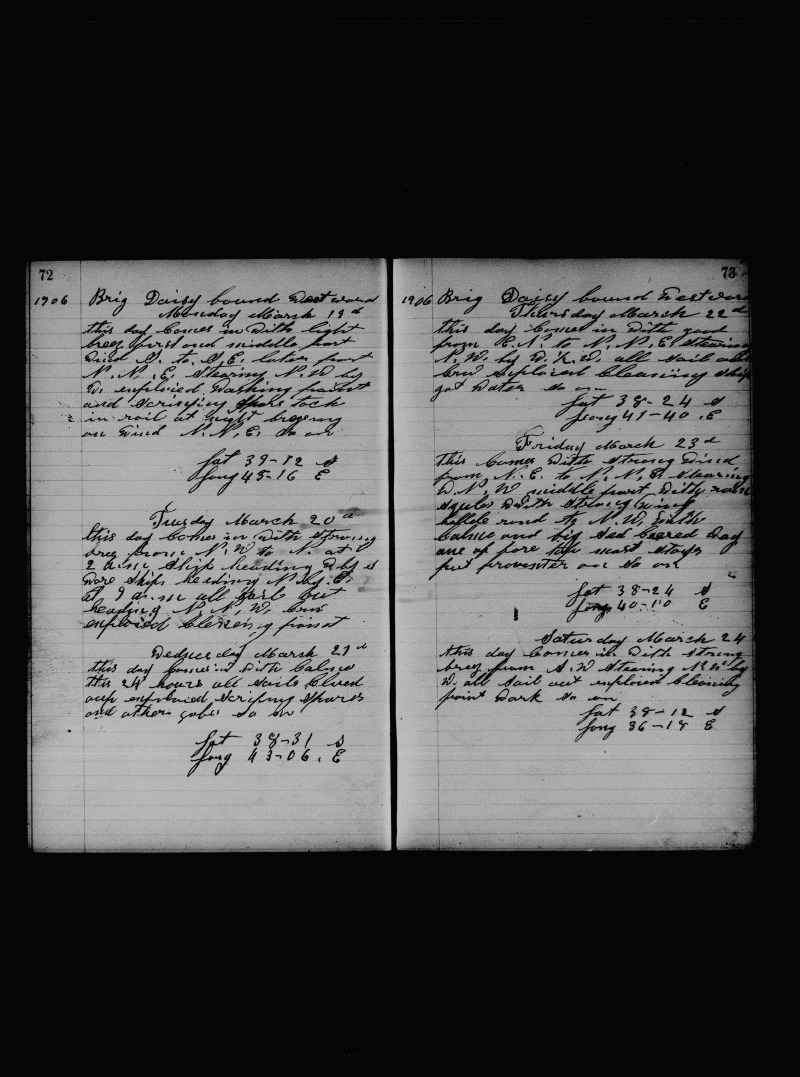 72
1906 Brig Daisy bound Westward
Monday March 19 d
this day Comes in With light
breez first and middle part
Wind S. to S.E. later part
N. N. E. Stearing N.W by
W. employed Washing paint
and Scrifying Spars tock
in sail at night
on Wind N.N.E. So on
Lat 39-12 S
Long 45-16 E
Tuesday March 20 d
this day Comes in With Strong
breez from N.W to N. at
2 a.m Ship heading W by S
Wore Ship heading N by E.
at 9 a.m all Sail out
heading N. N. W. Crew
employed Clening paint
Wedsneday March 21 d
this day Comes in With Calmes
this 24 hours all Sails Clued
oup employed Scrifing Spares
and others gobs So on
Lat 38-31 S
Long 43-06. E
73
1906 Brig Daisy bound Westward
Thersday March 22 d
this day Comes in With good
from E.N. to N.N.E. Stearing
N.W. by W. all Sail out
Crew Employed Cleaning Ship
got Water So on
Lat 38-24 S
Long 41-40. E
Friday March 23 d
this Comes With Strong Wind
from N.E. to N.N.E. Stearing
W.N.W middle part With rain
Squles With Strong
rond to N.W, With
Calme and big Sea
one of fore mast Stays
put proventer on So on
Lat 38-24 S
Long 40-10 E
Saturday March 24
this day Comes in With Strong
breez from S.W Stearing by
W. all Sail out employed Cleaning
paint Work So on
Lat 38-12 S
Long 36-18 E